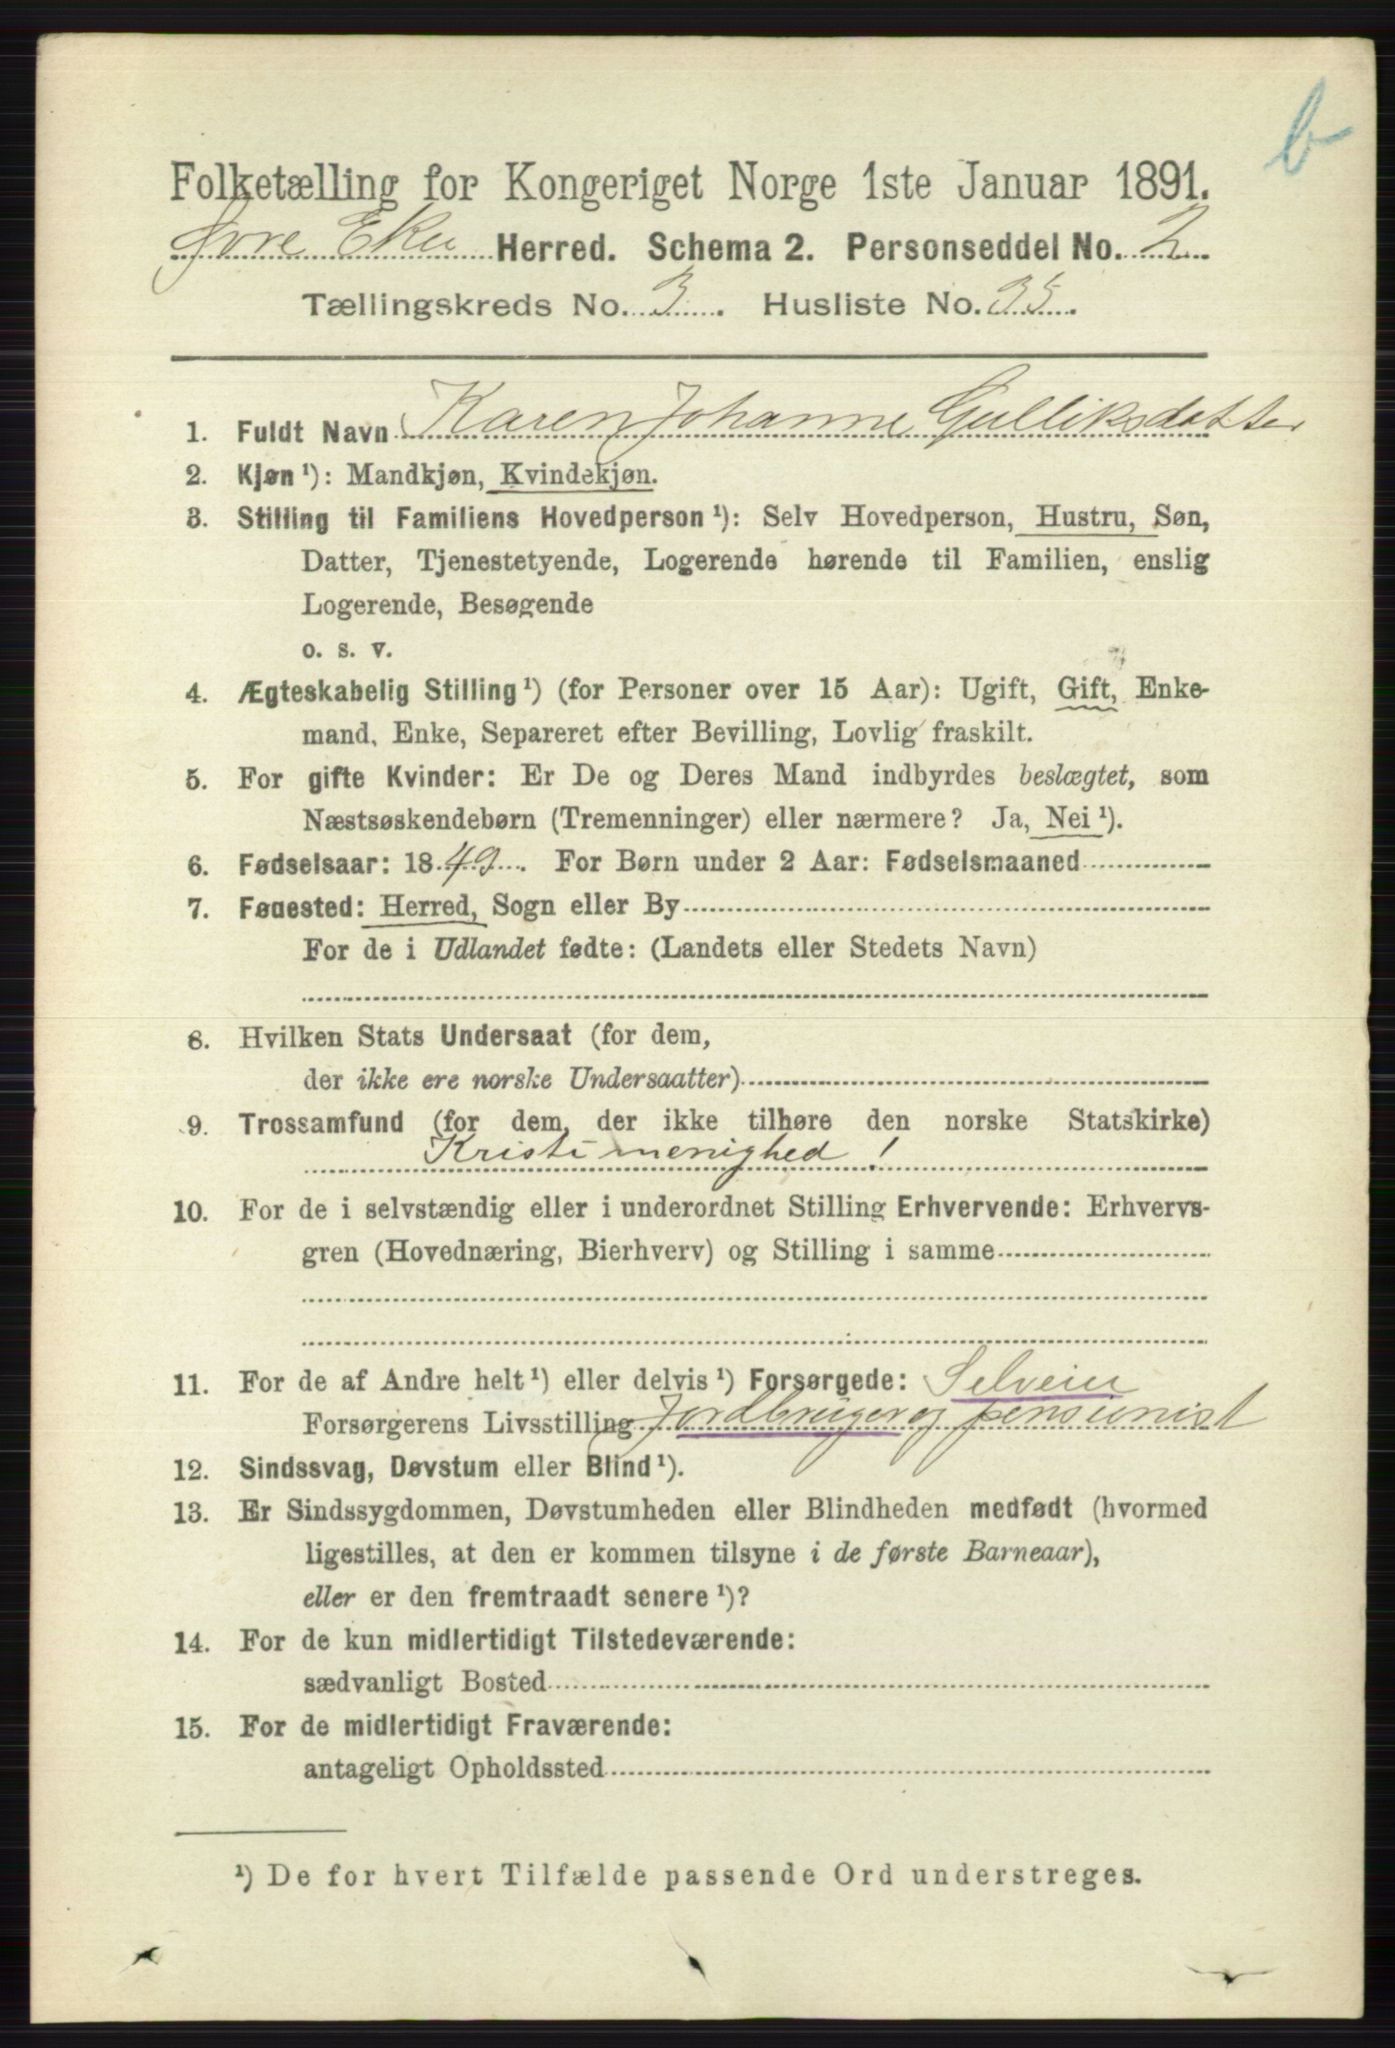 b
Folketælling for Kongeriget Norge 1ste Januar 1891.
Øvre Eker Herred. Schema 2. Personseddel No. 2
Tællingskreds No. 3. Husliste No. 35.
1. Fuldt Navn Karen Johanne Gulliksdatter
2. Kjøn ¹): Mandkjøn, Kvindekjøn.
3. Stilling til Familiens Hovedperson ¹): Selv Hovedperson, Hustru, Søn,
Datter, Tjenestetyende, Logerende hørende til Familien, enslig
Logerende, Besøgende
o. s. v.
4. Ægteskabelig Stilling ¹) (for Personer over 15 Aar): Ugift, Gift, Enke-
mand, Enke, Separeret efter Bevilling, Lovlig fraskilt.
5. For gifte Kvinder: Er De og Deres Mand indbyrdes beslægtet, som
Næstsøskendebørn (Tremenninger) eller nærmere? Ja, Nei ¹).
6. Fødselsaar: 1849. For Børn under 2 Aar: Fødselsmaaned
7. Fødested: Herred, Sogn eller By
For de i Udlandet fødte: (Landets eller Stedets Navn)
8. Hvilken Stats Undersaat (for dem,
der ikke ere norske Undersaatter)
9. Trossamfund (for dem, der ikke tilhøre den norske Statskirke)
Kristi menighed !
10. For de i selvstændig eller i underordnet Stilling Erhvervende: Erhvervs-
gren (Hovednæring, Bierhverv) og Stilling i samme
11. For de af Andre helt ¹) eller delvis ¹) Forsørgede: Selveier
Forsørgerens Livsstilling Jordbruger og pensionist
12. Sindssvag, Døvstum eller Blind ¹).
13. Er Sindssygdommen, Døvstumheden eller Blindheden medfødt (hvormed
ligestilles, at den er kommen tilsyne i de første Barneaar),
eller er den fremtraadt senere ¹)?
14. For de kun midlertidigt Tilstedeværende:
sædvanligt Bosted
15. For de midlertidigt Fraværende:
antageligt Opholdssted
¹) De for hvert Tilfælde passende Ord understreges.